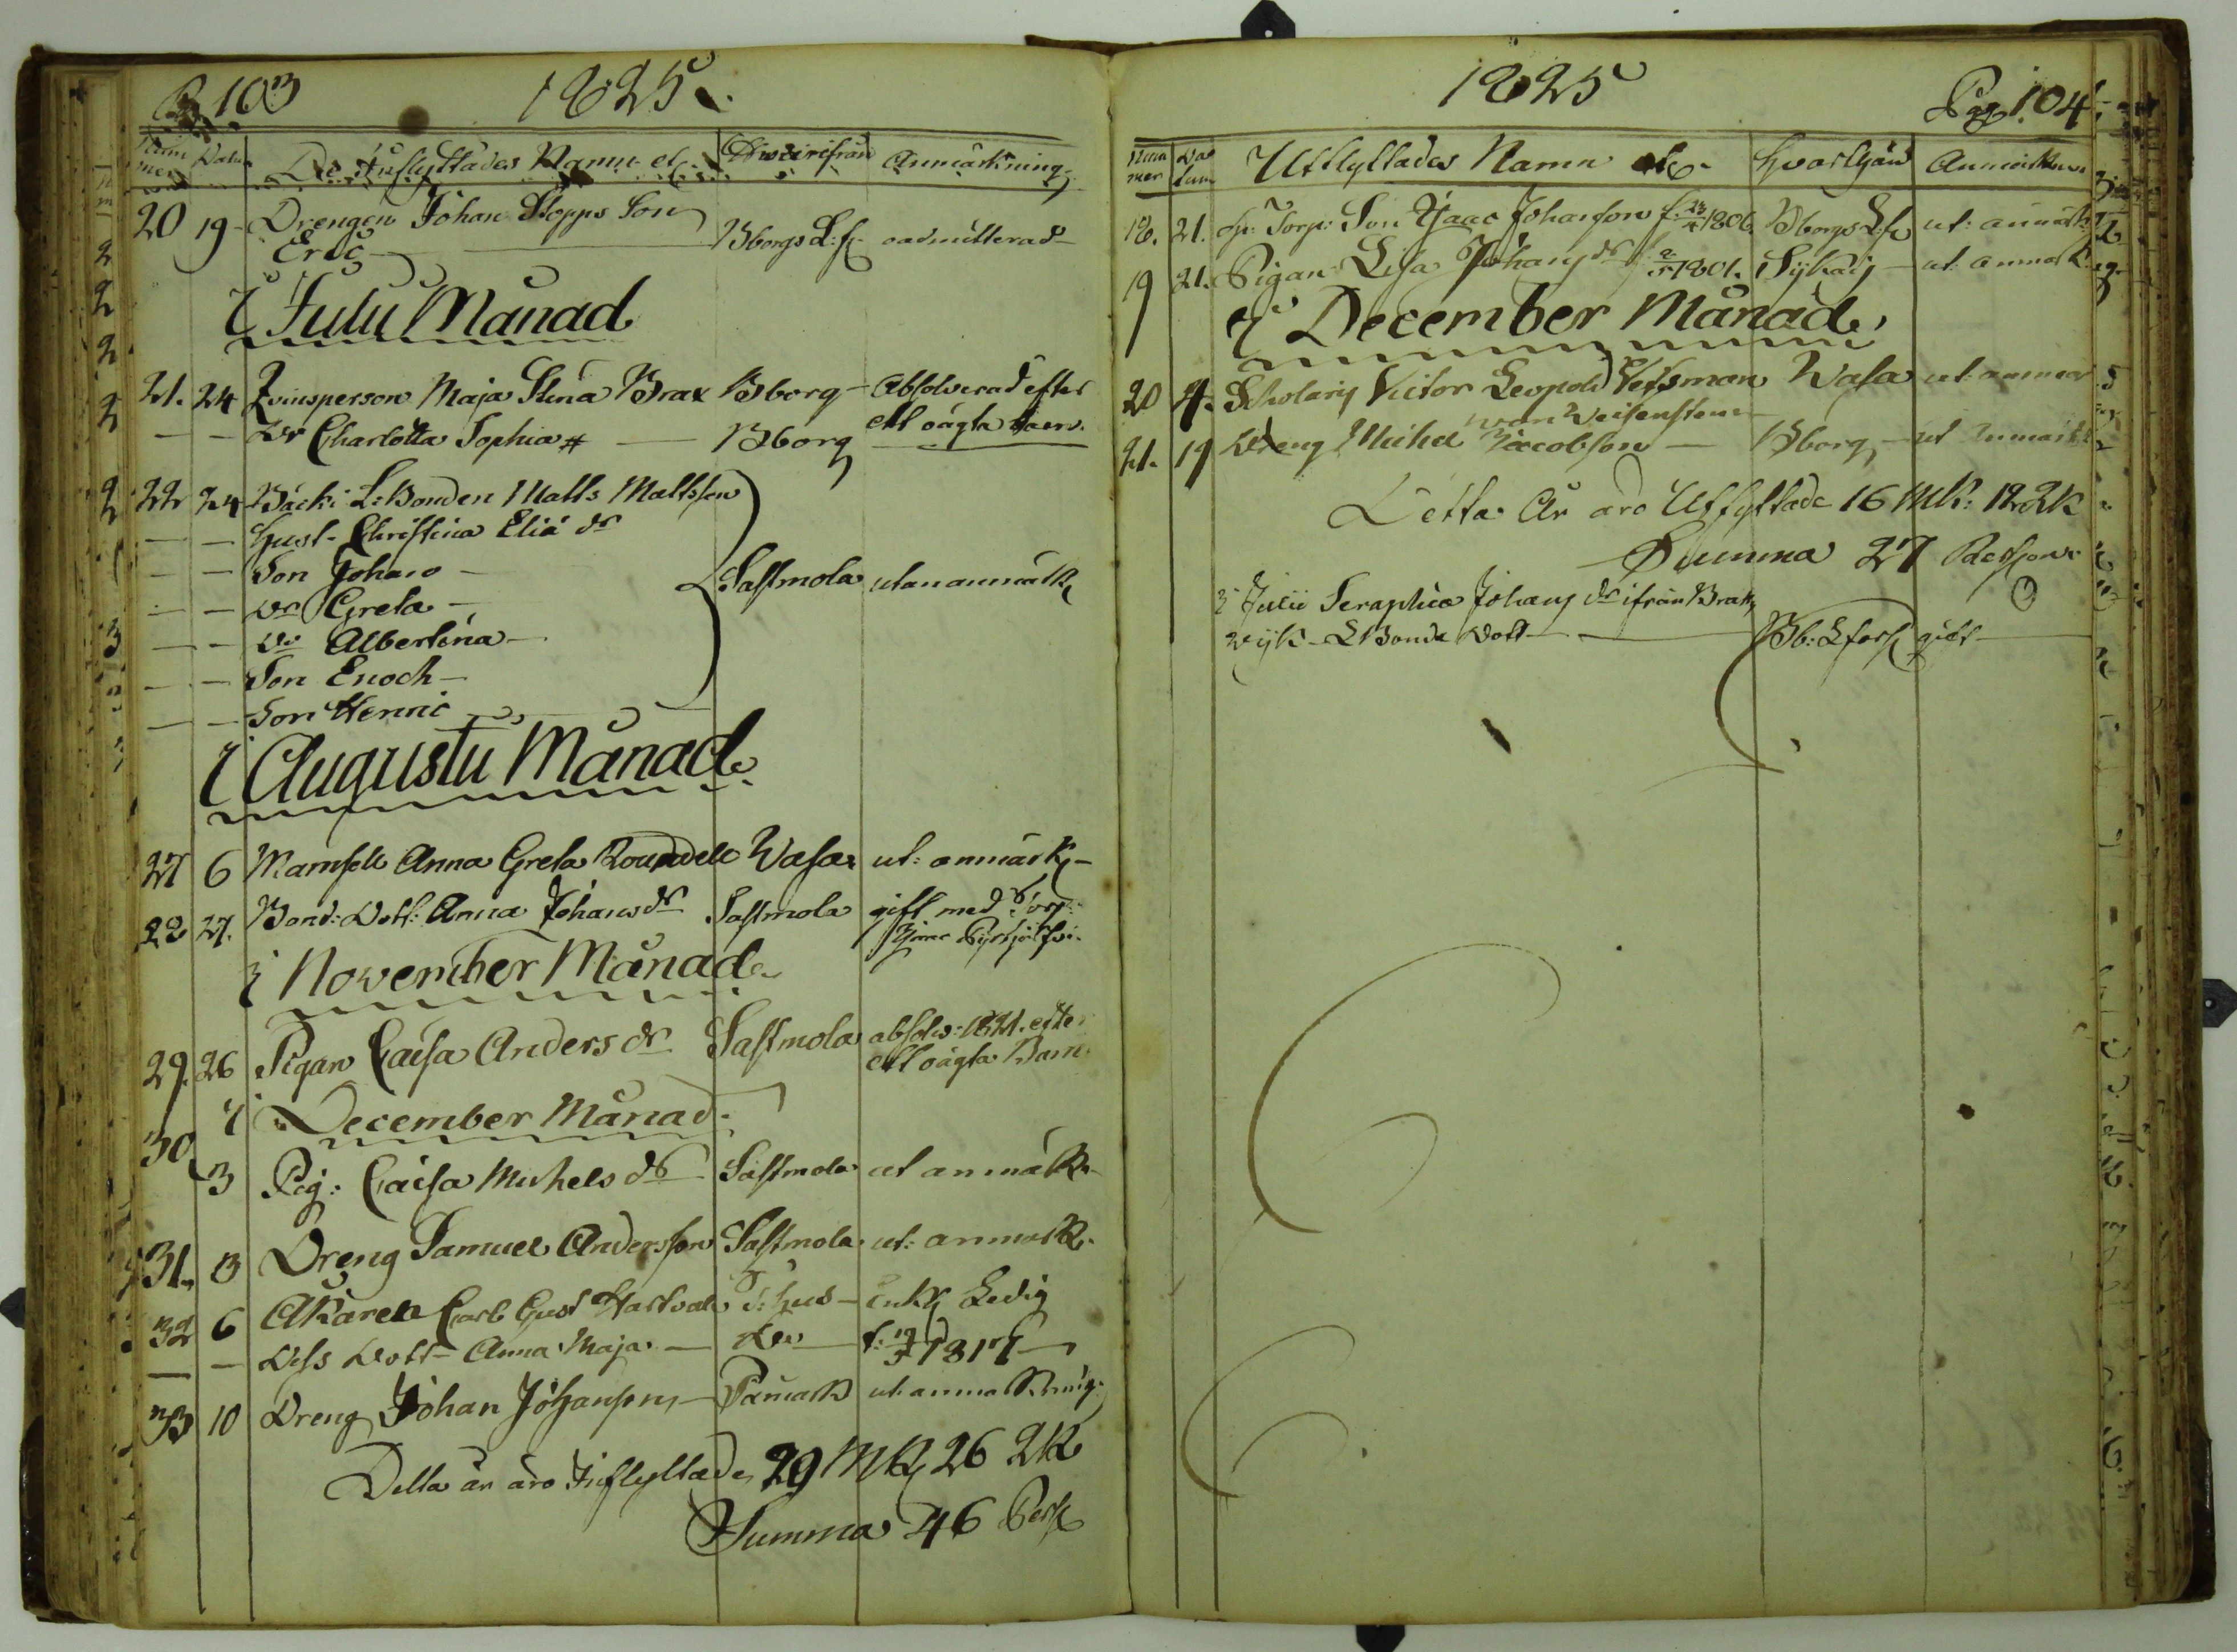 103 1825.
Nummer Datum De Inflyttades Namn etc. Hvarifrån Anmärkning
20 19 Drengen Johan Stopps Son
Eric Bborgs L:f. oadmitterad
I Julii Månad
21. 24 Qvinsperson Maja Stina Brax Bborg Absolverad efter
— — Dr Charlotta Sophia # — Bborg ett oägta barn.
22 24 Back: L:Bonden Matts Mattsson
— — Hust. Christina Elia dr
— — Son Johan —
— — Dr Greta — Sastmola utan anmärk
— — Dr Albertina —
— — Son Enoch —
— — Son Henric
I Augustii Månad
27 6 Mamsell Anna Greta Wasa ut: anmärk
28 27. Bond: Dott: Anna Johans dr Sastmola gift med Torp:
I November Månad
29. 26 Pigan Caisa Anders dr Sastmola absolv: 1821. efter
ett oägta Barn
I December Månad
30 3 Pig: Caisa Michels dr Sastmola ut anmärk
31. 3 Dreng Samuel Andersson Sastmola ut: anmärk.
32 6 Åkaren Carl Gust Hartval T:hus — Enkl. Ledig
— — Dess Dott Anna Maja — Do — f: 19/5 1817 —
33 10 Dreng Johan Johansson Påmark ut anmärkning
Detta år äro Inflyttade 20 MK 26 QK
Summa 46 Pers
1825 Pag 104
Nummer Datum Utflyttades Namn etc. Hvartham Anmärkn.
18. 21. Torp: Son Isaac Johansson f. 1806. Bborgs L:f. ut: anmärk
19 21. Pigan Lisa Johans dr 1801. Sijkaij ut: anmärk
I December Månad
20 4. Scholaris Victor Leopold Wasa ut: anmär
von Weisenstein
21. 19 Dreng Michel Jacobsson — Bborg — ut anmärk
Detta År äro Utflyttade 16 MK: 12 QK
Summa 27 Personer
I Julii Seraphia Johans dr ifrån
L Bonde Dott — Bb: L fors gift